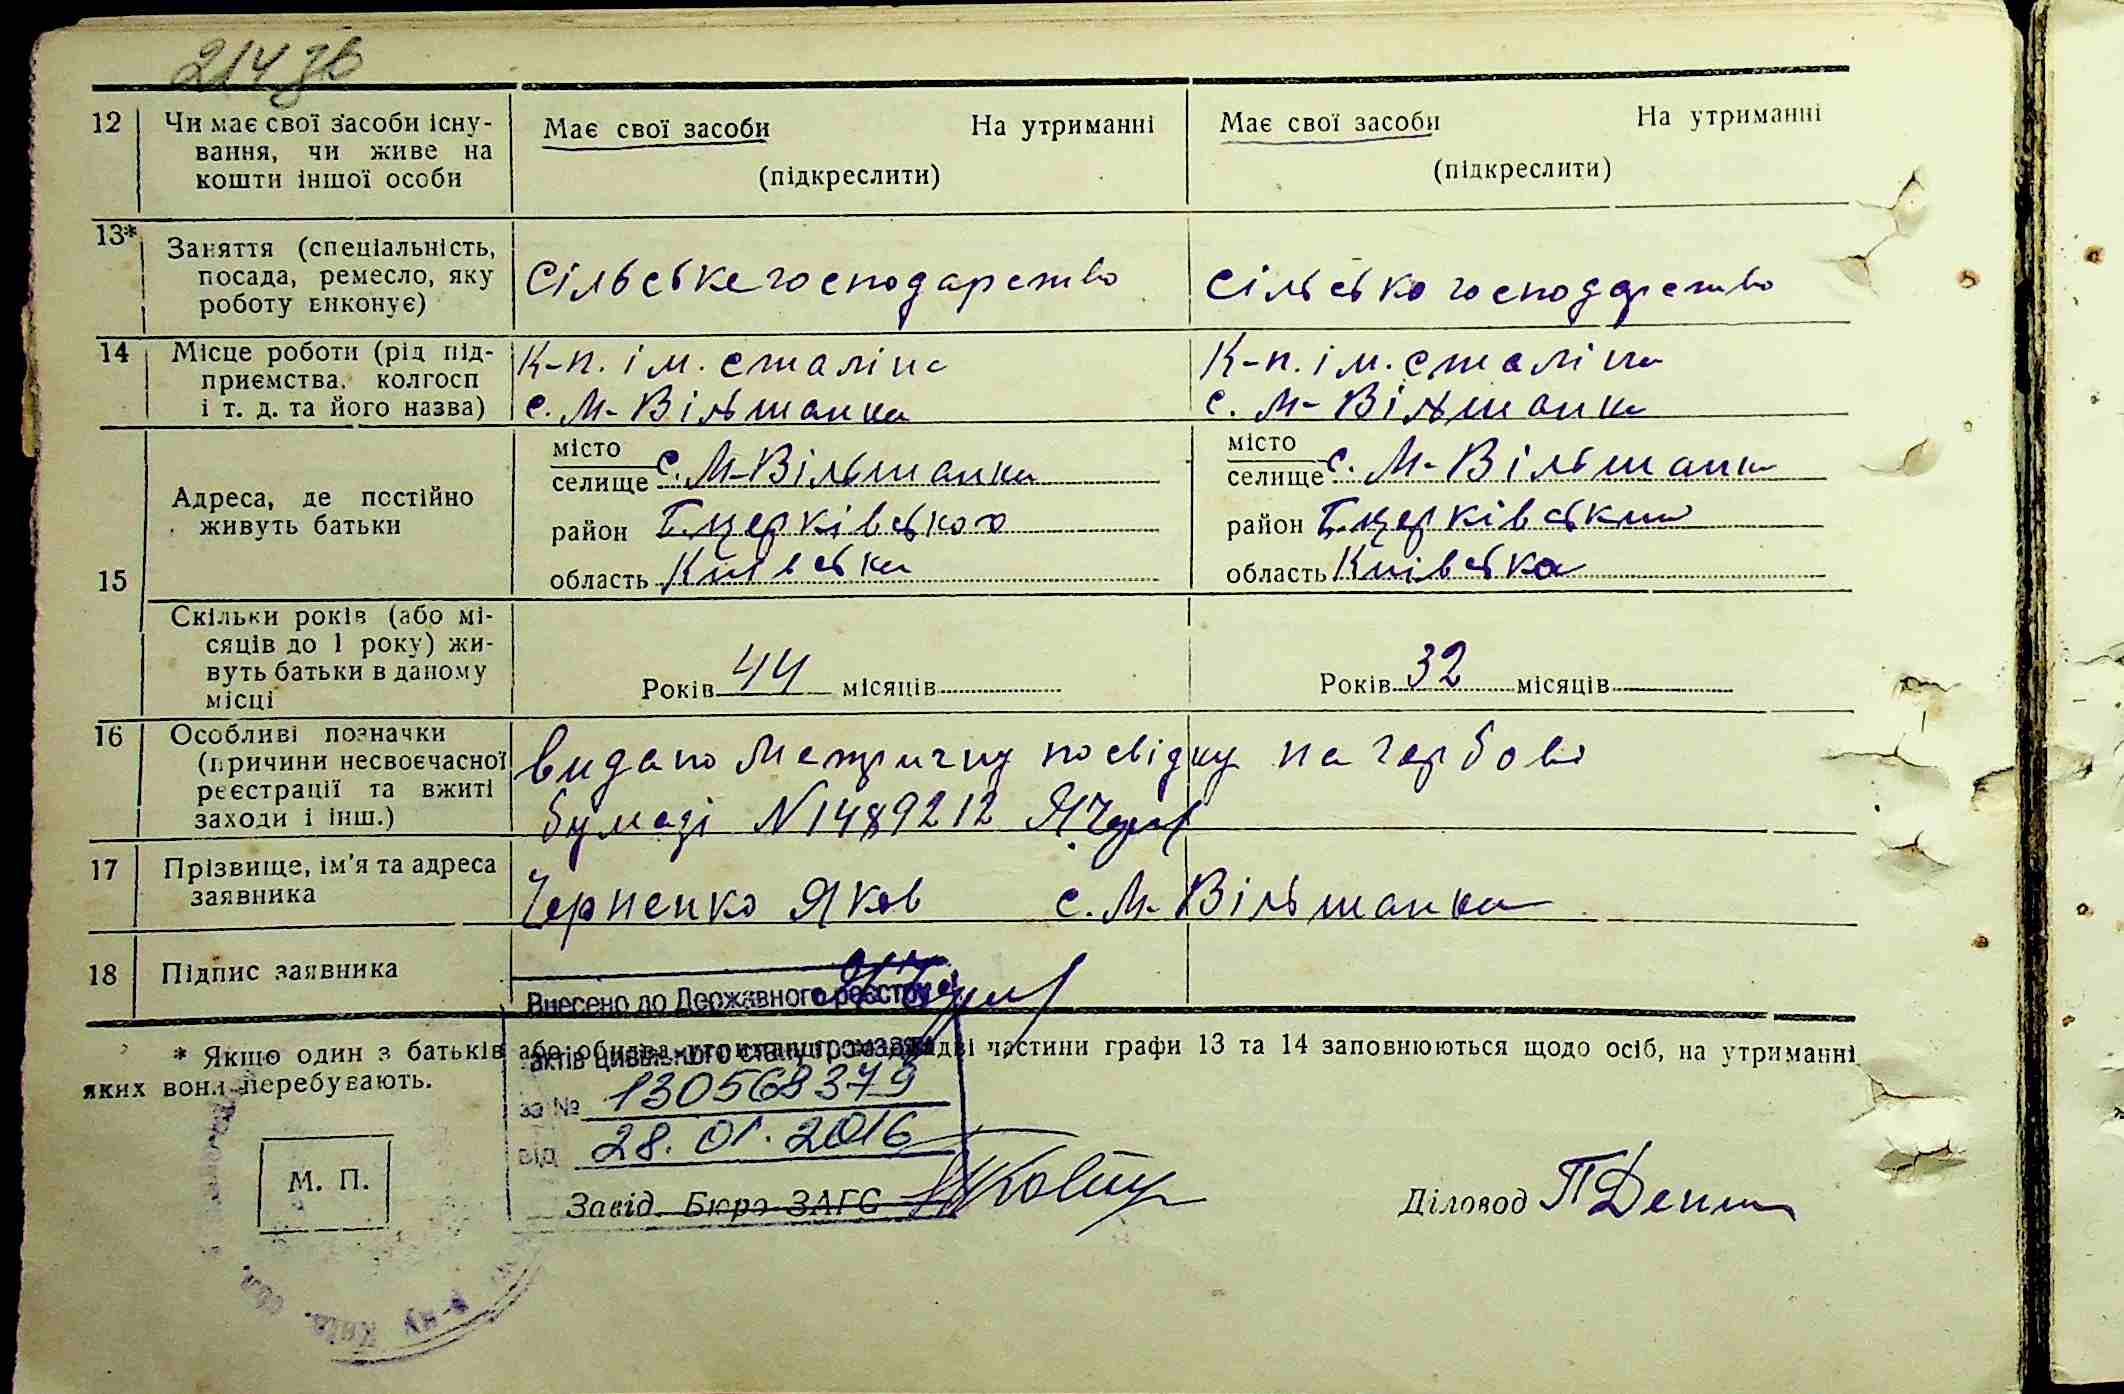 214 зв
12 Чи має свої засоби існу- Має свої засоби На утриманні Має свої засоби На утриманні
вання, чи живе на
кошти іншої особи (підкреслити) (підкреслити)
13* Заняття (спеціальність,
посада, ремесло, яку Сільське господарство Сільсько господарство
роботу виконує)
14 Місце роботи (рід під- К-п. ім. Сталіна К-п. ім. Сталіна
приємства, колгосп
і т. д. та його назва) с. М-Вільшанка с. М-Вільшанка
місто місто
селище с. М-Вільшанка селище с. М-Вільшанка
15 Адреса, де постійно
живуть батьки район Б.церківського район Б.церківський
область Київська область Київська
Скільки років (або мі-
сяців до 1 року) жи-
вуть батьки в даному Років 44 місяців Років 32 місяців
місці
16 Особливі позначки
(причини несвоєчасної видано метричну посвідку на гербові
реєстрації та вжиті
заходи і інш.) бумазі N 1489212
17 Прізвище, ім'я та адреса
заявника Черненко Яков с. М-Вільшанка
18 Підпис заявника
Внесено до Державного реєстру
актів цивільного стану громадян
за № 130568379
від 28.01.2016
* Якщо один з батьків або обидва частини графи 13 та 14 заповнюються щодо осіб, на утриманні
яких вони перебувають.
М. П.
Завід. Бюро ЗАГС Діловод
р-ну Київ. обл.